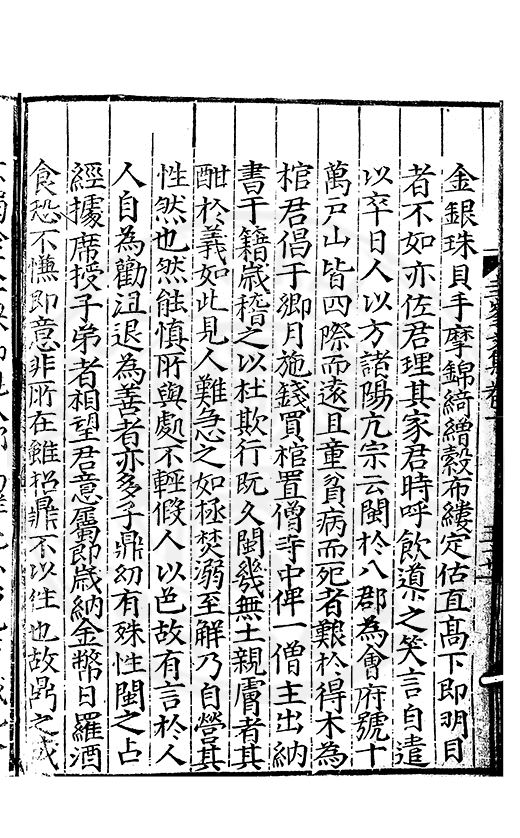 金銀珠貝手摩錦綺繒縠布縷定估直髙下即明目
者不如亦佐君理其家君時呼飲道之笑言自遣
以卒日人以方諸陽亢宗云閩於八郡為會府號十
萬戸山皆四際而遠且童貧病而死者艱於得木為
棺君倡于鄉月施錢買棺置僧寺中俾一僧主出納
書于籍嵗稽之以杜欺行旣久閩幾無土親膚者其
酣於義如此見人難急之如極焚溺至解乃自營其
性然也然能慎所與處不輕假人以色故有言於人
人自為勸沮退為善者亦多子鼎幼有殊性閩之占
經據席授子弟者相望君意屬即嵗納金幣日羅酒
食恐不慊即意非所在雖招鼎不以往也故鼎之成